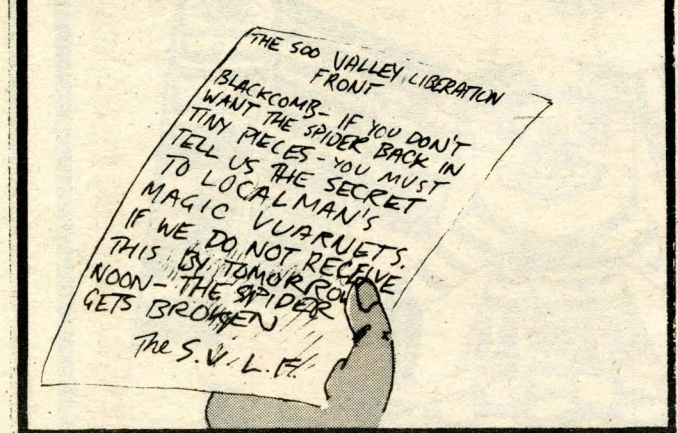 THE SOO VALLEY LIBERATION
FRONT
BLACKCOMB- IF YOU DON'T
WANT THE SPIDER BACK IN
TINY PIECES - YOU MUST
TELL US THE SECRET
TO LOCALMAN'S
MAGIC VUARNETS.
IF WE DO NOT RECEIVE
THIS BY TOMORROW
NOON- THE SPIDER
GETS BROKEN
The S.V.L.F.